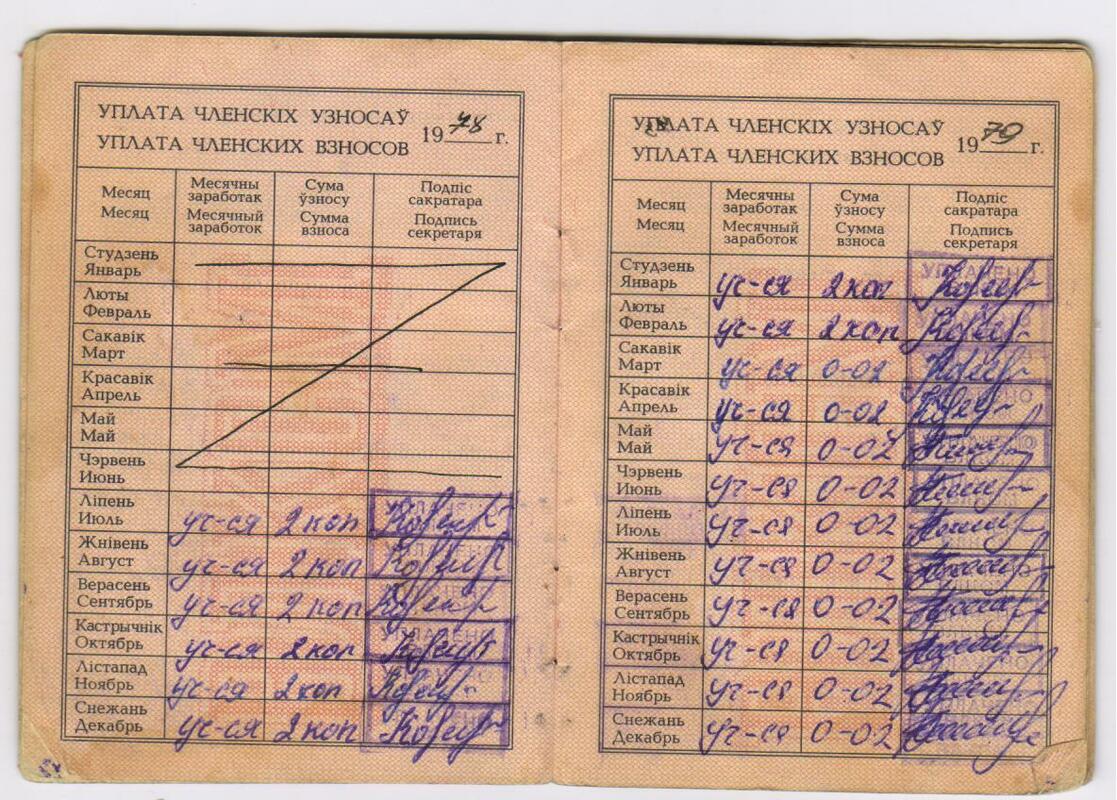 УПЛАТА ЧЛЕНСКІХ УЗНОСАЎ
УПЛАТА ЧЛЕНСКИХ ВЗНОСОВ
1978 г.
Месяц
Месяц
Месячны
заработак
Месячный
заработок
Сума
ўзносу
Сумма
взноса
Подпіс
сакратара
Подпись
секретаря
Студзень
Январь
Люты
Февраль
Сакавік
Март
Красавік
Апрель
Май
Май
Чэрвень
Июнь
Ліпень
Июль уч-ся 2 коп
Жнівень
Август уч-ся 2 коп
Верасень
Сентябрь уч-ся 2 коп
Кастрычнік УПЛАЧЕНО
Октябрь уч-ся 2 коп
Лістапад
Ноябрь уч-ся 2 коп
Снежань
Декабрь уч-ся 2 коп
УПЛАТА ЧЛЕНСКІХ УЗНОСАЎ
УПЛАТА ЧЛЕНСКИХ ВЗНОСОВ
1979 г.
Месяц
Месяц
Месячны
заработак
Месячный
заработок
Сума
ўзносу
Сумма
взноса
Подпіс
сакратара
Подпись
секретаря
Студзень УПЛАЧЕНО
Январь уч-ся 2 коп
Люты
Февраль уч-ся 2 коп
Сакавік
Март уч-ся 0-02
Красавік
Апрель уч-ся 0-02
Май
Май уч-ся 0-02
Чэрвень
Июнь уч-ся 0-02
Ліпень
Июль уч-ся 0-02
Жнівень
Август уч-ся 0-02
Верасень
Сентябрь уч-ся 0-02
Кастрычнік
Октябрь уч-ся 0-02
Лістапад
Ноябрь уч-ся 0-02
Снежань
Декабрь уч-ся 0-02